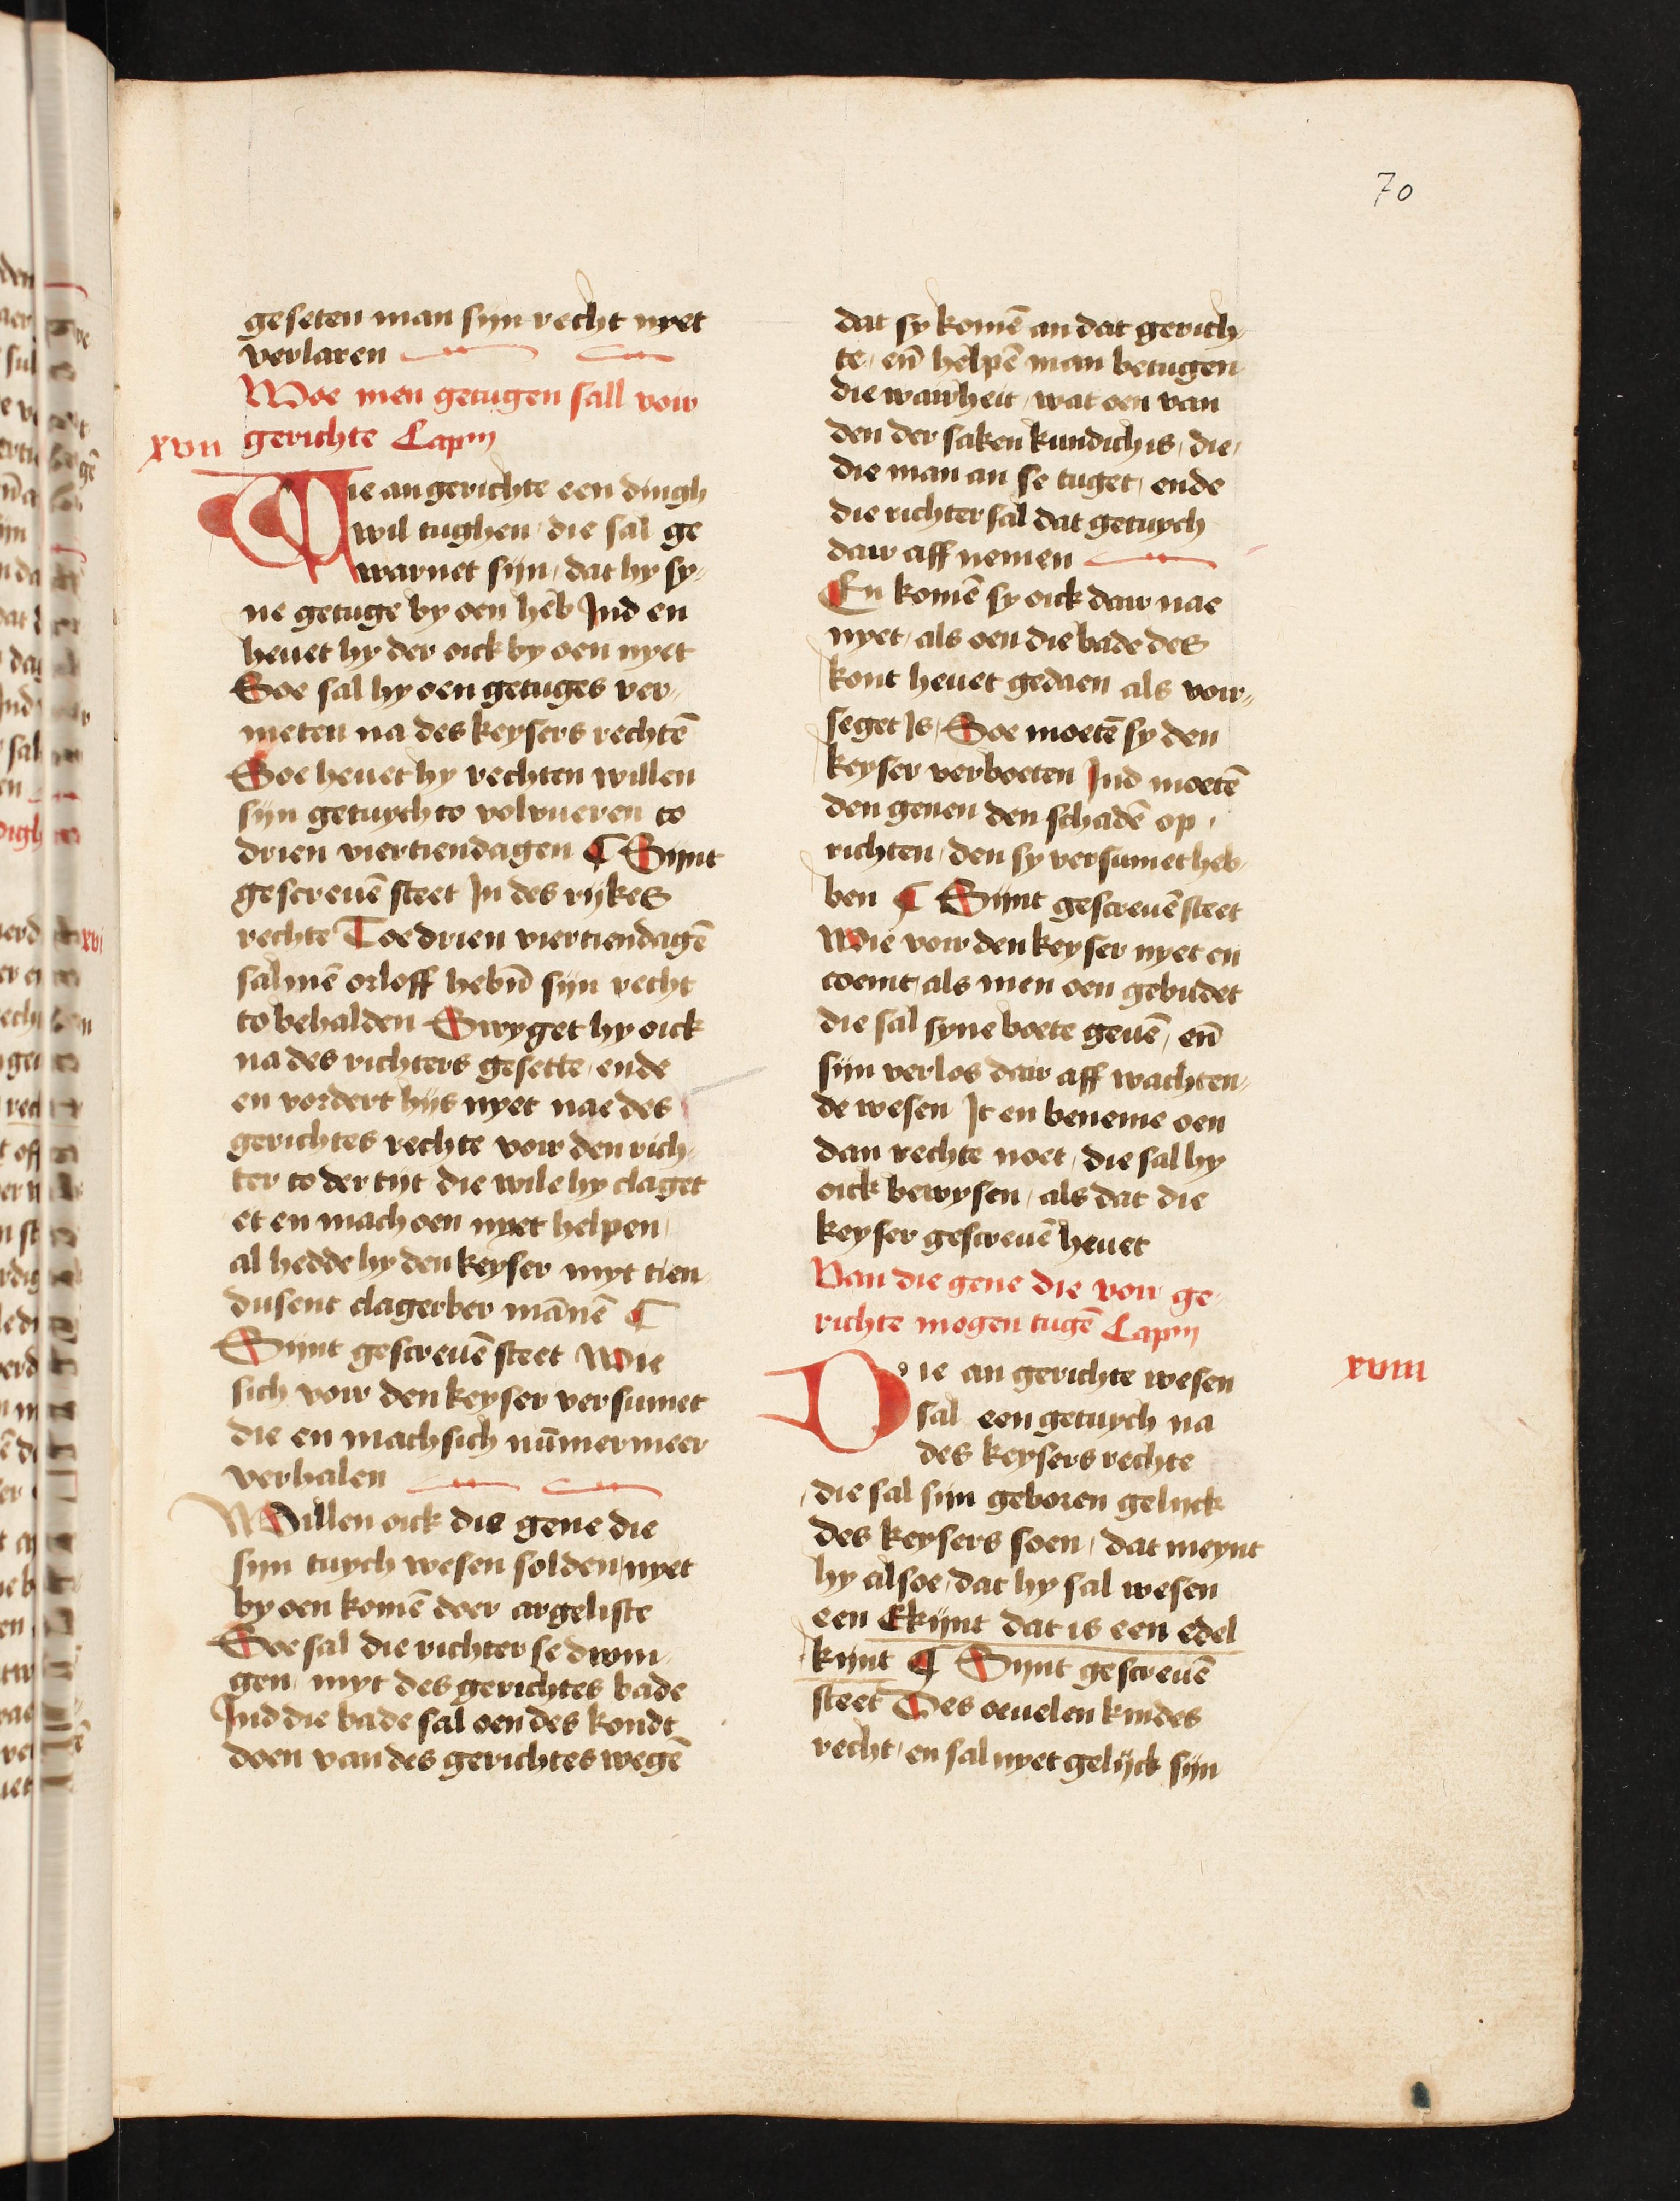 70
geseten man sijn recht nyet
verlaren
Woe men getugen sall voir
xvii gerichte Capm
Wie an gerichte een dingh
wil tughen / die sal ge
warnet sijn / dat hy sy-
ne getuge by oen heb Ind en
heuet hy der oick by oen nyet
Soe sal hy oen getuges ver-
meten na des keysers rechtē
Soe heuet hy rechten willen
sijn getuych to volvueren to
drien viertiendagen ¶ Sijnt
gescreuē steet In des rijkes
rechte Toe drien viertiendagē
sal mē orloff hebn̄ sijn recht
to behalden Swyget hy oick
na des richters gesette / ende
en vordert hijs nyet nae des
gerichtes rechte voir den rich-
ter to der tijt die wile hy claget
et en mach oen nyet helpen /
al hedde hy den keyser myt tien
dusent clagerber mānē ¶
Sijnt gescreuē steet Wie
sich voir den keyser versumet
die en mach sich nūmermeer
verhalen
Willen oick die gene die
sijn tuych wesen solden / nyet
by oen komē doer argeliste
Soe sal die richter se dwin-
gen / myt des gerichtes bade
Ind die bade sal oen des kondt
doen van des gerichtes wegē
dat sy komē an dat gerich-
te / en̄ helpē man betugen
die wairheit / wat oen van
den der saken kundich is / die /
die man an se tuget / ende
die richter sal dat getuych
dair aff nemen
En komē sy oick dair nae
nyet / als oen die bade des
kont heuet gedaen als voir-
seget Is / Soe moetē sy den
keyser verboeten Ind moetē
den genen den schadē op /
richten / den sy versumet heb-
ben ¶ Sijnt gescreuē steet
Wie voir den keyser nyet en
coemt / als men oen gebudet
die sal syne boete geuē / en̄
sijn verlos dair aff wachten-
de wesen It en beneme oen
dan rechte noet / die sal hy
oick bewysen / als dat die
keyser gescreuē heuet
Van die gene die voir ge-
richte mogen tugē Capm
xviii
Die an gerichte wesen
sal een getuych na
des keysers rechte
die sal sijn geboren gelijck
des keysers soen / dat meynt
hy alsoe / dat hy sal wesen
een Ekijnt dat is een edel
kijnt ¶ Sijnt gescreuē
steet Des oeuelen kindes
recht / en sal nyet gelijck sijn